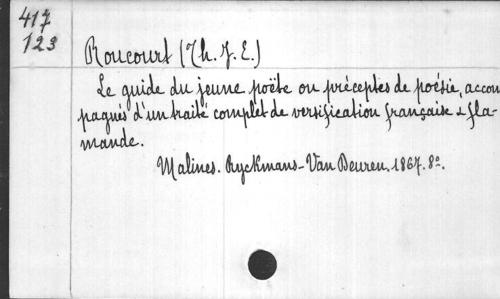 417
123
Roucourt (Th. J. E.)
Le guide du jeune poëte ou préceptes de poésie, accom
pagnés d'un traité complet de versification française & fla-
mande.
Malines. Ryckmans-Van Deuren. 1867. 8°.